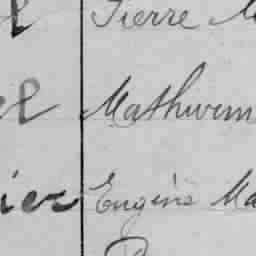 el Pierre M
el Mathurin
ier Eugène Ma